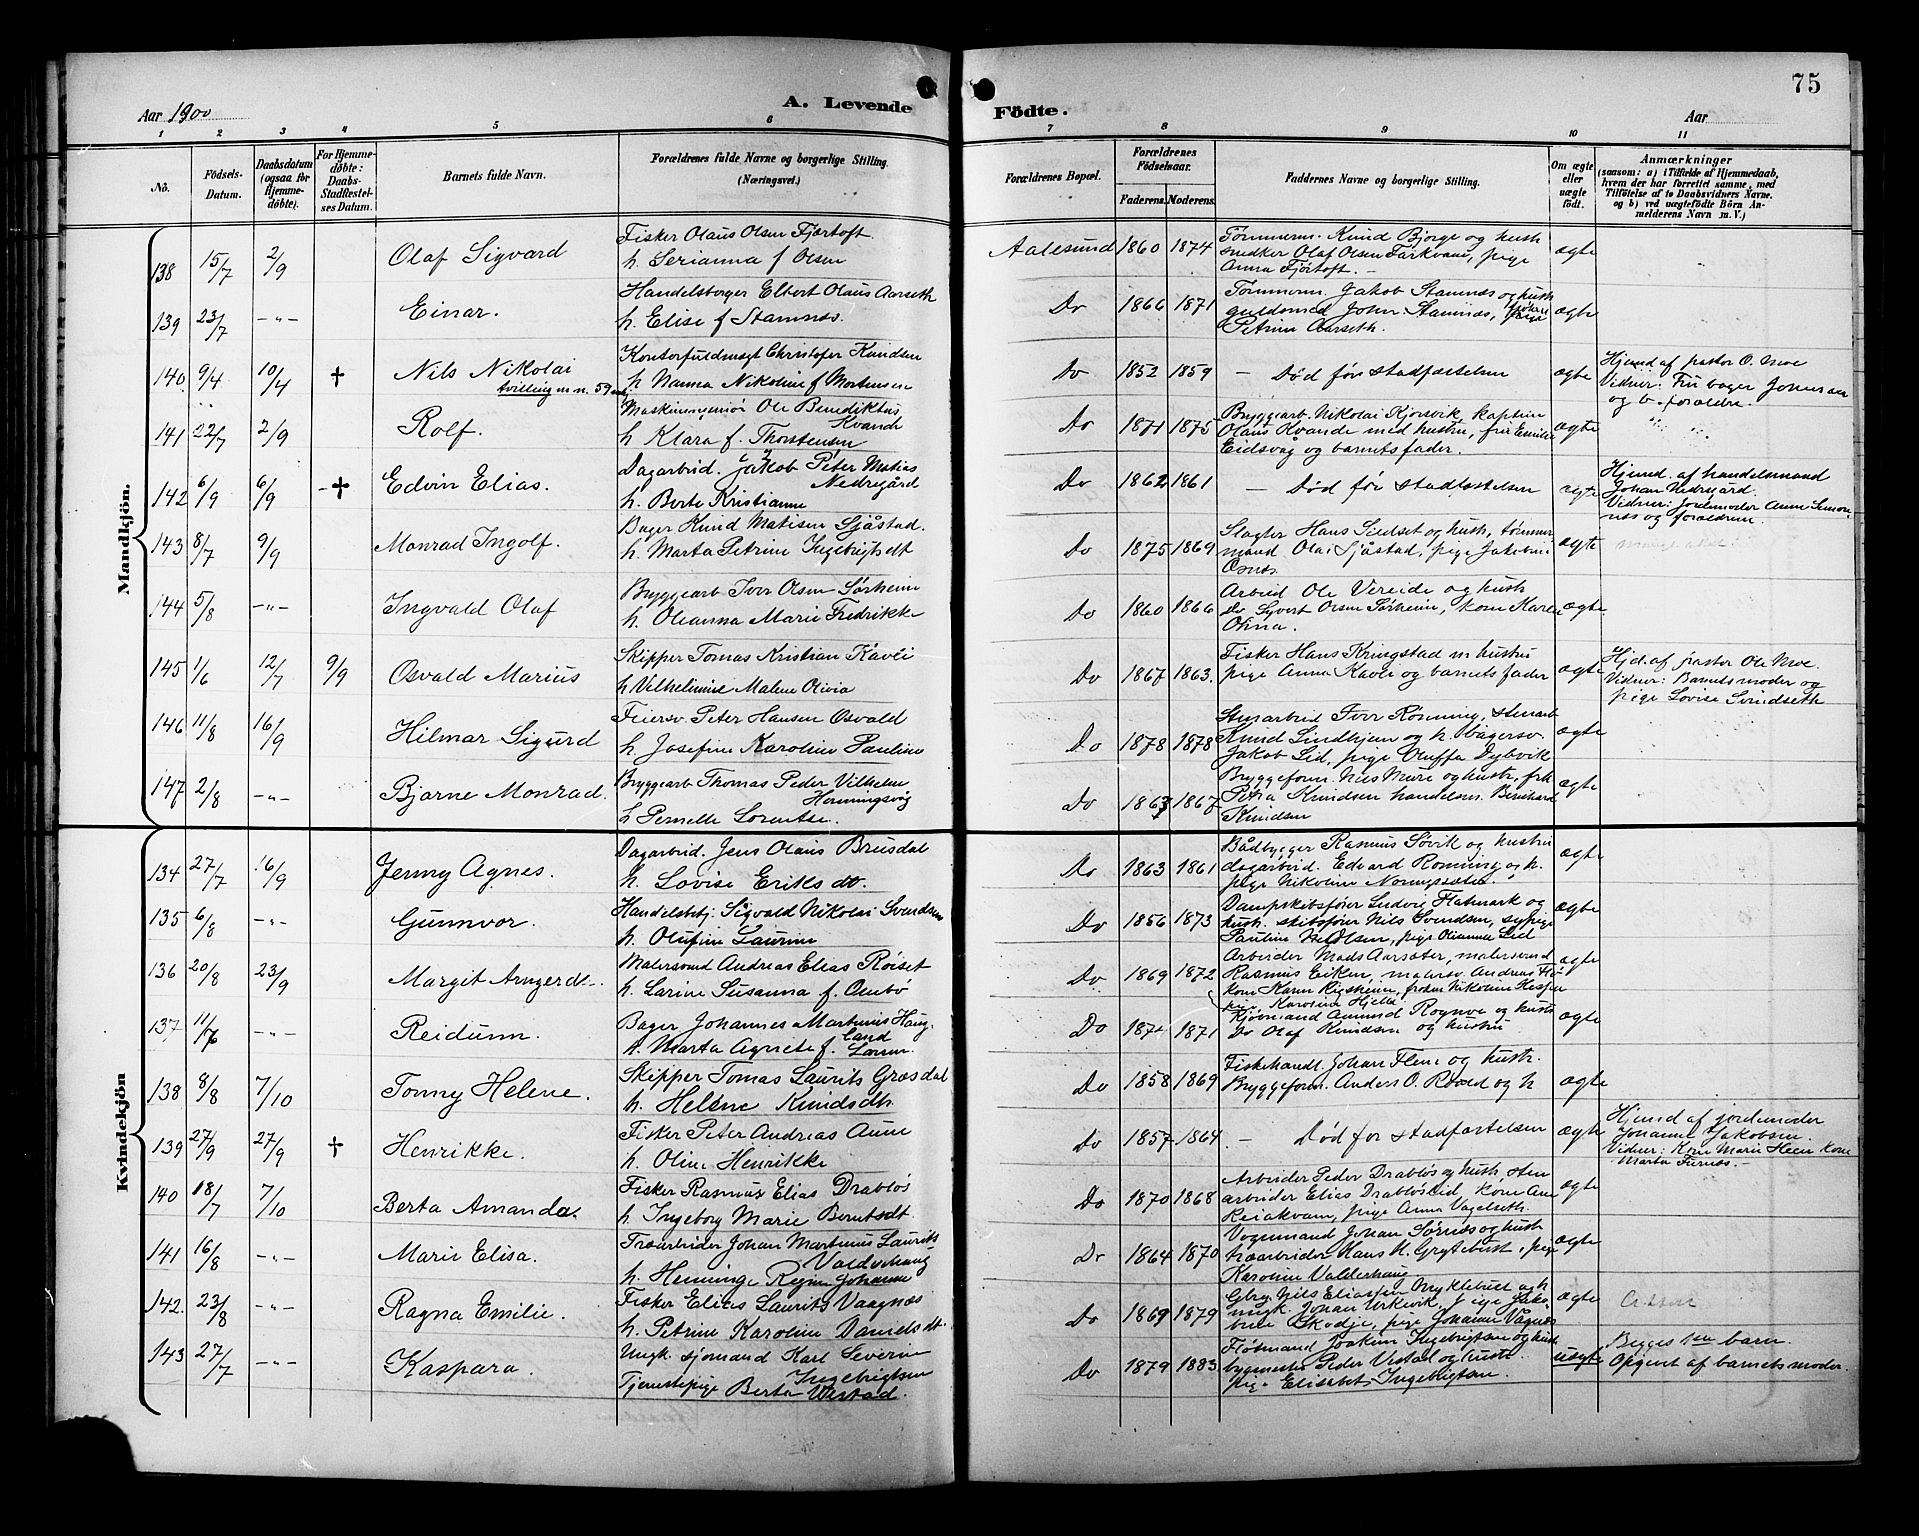 75
Aar 1900
A. Levende
Födte.
Aar
1 2 3 4 5 6 7 8 9 10 11
Nö.
Födsels-Datum.
Daabsdatum (ogsaa for Hjemme-döbte).
For Hjemme-döbte: Daabs-Stadfæstel-ses Datum.
Barnets fulde Navn.
Forældrenes fulde Navne og borgerlige Stilling.
(Næringsvei.)
Forældrenes Bopæl.
Forældrenes Födselsaar.
Faderens. Moderens.
Faddernes Navne og borgerlige Stilling.
Om ægte eller uægte födt.
Anmærkninger
(saasom: a) i Tilfælde af Hjemmedaab,
hvem der har forrettet samme, med
Tilföielse af to Daabsvidners Navne.
og b) ved uægtefödte Börn An-
melderens Navn m. V.)
Mandkjön.
138 15/7 2/9 Olaf Sigvard
Fisker Olaus Olsen Fjærtoft.
h. Serianna f Olsen
Aalesund 1860 1874
Tømmerm. Knud Bjørge og hust
snedker Olaf Olsen Farkvam, pige
Anna Fjørtoft. –
ægte
139 23/7 –"– Einar.
Handelsborger Elbert Olaus Aarseth
h. Elise f Stamnæs.
Do 1866 1871
Tømmerm. Jakob Stamnæs og hust
guldsmed John Stamnæs, pige
Petrine Aarseth.
ægte
140 9/4 10/4 † Nils Nikolai
tvilling m n. 59
Kontorfuldmægt Christofer Knudsen
h Nanna Nikoline f Mortensen
Do 1852 1859
– Død før stadfæstelsen
ægte
Hjemd af pastor O. Moe
Vidner: Fru bager Johnsen
og b. forældre.
141 22/7 2/9 Rolf.
Maskiningeniør Ole Benediktus
Kvande
h Klara f. Thorstensen
Do 1871 1875
Bryggearb. Nikolai Kjørsvik, kaptein
Olaus Kvande med hustru, frk Emilie
Eidsvåg og barnets fader.
ægte
142 6/9 6/9 –† Edvin Elias.
Dagarbeid. Jakob Peter Matias
Nedregård
h. Berte Kristianne
Do 1862 1861
– Død før stadfæstelsen
ægte
Hjemd. af handelsmand
Johan Nedregård.
Vidner: Jordmoder Anne Simon-
næs og forældrene.
143 8/7 9/9 Monrad Ingolf.
Bager Knud Matisen Sjåstad.
h. Marta Petrine Ingebrigtsdt
Do 1875 1869
Slagter Hans Sildset og hust, tømmer
mand Olai Sjåstad, pige Jakobine
Osnæs.
ægte
144 5/8 –"– Ingvald Olaf
Bryggearb Iver Olsen Sørheim
h. Olianna Marie Fredrikke
Do 1860 1866
Arbeid Ole Vereide og hust
do Syvert Olsen Sørheim, kone Maren
Ohna.
ægte.
145 1/6 12/7 9/9 Osvald Marius
Skipper Tomas Kristian Kavli
h Vilhelmine Malene Olivia
Do 1867 1863.
Fisker Hans Kringstad m hustru
pige Anna Kavle og barnets fader
ægte
Hjd. af pastor Ole Moe.
Vidner: Barnets moder og
pige Lovise Svindseth
146 11/8 16/9 Hilmar Sigurd
Feiersv. Peter Hansen Osvald
h. Josefine Karoline Pauline
Do 1878 1878
Stenarbeid Iver Rønning, stenarb
Knud Lindhjem og h. bagersv.
Jakob Lid, pige Oluffa Dybvik
ægte
147 2/8 –"– Bjarne Monrad.
Bryggearb Thomas Peder Vilhelm
Henningsvig
h Pernelle Lorentse.
Do 1863 1867
Bryggeform. Nils Mure og hust, frk
Petra Knudsen handelsm. Bernhard
Knudsen
ægte
Kvindekjön
134 27/7 16/9 Jenny Agnes.
Dagarbeid. Jens Olaus Brusdal
h. Lovise Eriksdt.
Do 1863 1861
Bådbygger Rasmus Søvik og hustru
dagarbeid. Edvard Rønning og h.
pige Nikoline Nøringsæter.
ægte
135 6/8 –"– Gunnvor.
Handelsbetj. Sigvald Nikolai Svendsen
h. Olufine Laurine
Do 1856 1873
Dampskibsfører Ludvi Flatmark og
hust. skibsfører Nils Svendsen, sypige
Pauline Nilsen, pige Olianna Lid
ægte
136 20/8 23/9 Margit Arngerd.
Malersvend Andreas Elias Røiset
h. Larine Susanna f. Ombo
Do 1869 1872
Arbeider Mads Aarsæter, malersvend
Rasmus Eiken, malersv. Andreas
kone Karen Rigsheim, frøken Nikoline
pige Karoline Hjelle
ægte
137 11/6 –"– Reidunn.
Bager Johannes Martinus Haug-
land
h. Marta Agnete f. Larsen.
Do 1871 1871
Kjøbmand Amund Rognve og hust
do Olaf Knudsen og hustru
ægte
138 8/8 7/10 Tonny Helene.
Skipper Tomas Laurits Græsdal
h. Helene Knudsdt.
Do 1858 1869
Fiskehandl. Johan Flem og hust.
Bryggeform. Anders O. Roald og h
ægte
139 27/9 27/9 † Henrikke.
Fisker Peter Andreas Aune
h. Oline Henrikke
Do 1857 1864
– Død før stadfæstelsen
ægte
Hjemd af jordemoder
Johanne Jakobsen.
Vidner: Kone Marie Heen kone
Marta Furnæs.
140 18/7 7/10 Berta Amanda.
Fisker Rasmus Elias Drabløs
h. Ingeborg Marie Berntsdt.
Do 1870 1868
Arbeider Peder Drabløs og hust, sten
arbeider Elias Drabløslid, kone Ane
Reiakvam, pige Anna Vagelseth.
ægte
141 16/8 –"– Marie Elisa.
Træarbeider Johan Martinus Laurits
Valderhaug
h. Henninge Regine Johanne
Do 1864 1870
Vognmand Johan Sørnæs og hust
træarbeider Hans M. Grytebust, pige
Karoline Valderhaug
ægte
142. 23/8 –"– Ragna Emilie.
Fisker Elias Laurits Vaagnæs
h. Petrine Karoline Danielsdt.
Do 1869 1879
Gbr. Nils Eliassen Myklebust og h
ungk. Johan Urkevik, pige Jako-
bine Skodje, pige Johanne Vagnæs
ægte
143 27/7 –"– Kaspara.
Ungk. sjømand Karl Severin
Ingebrigtsen
Tjenestepige Berta Vestad.
Do 1879 1883
Fløtmand Joakim Ingebrigtsen og hust
bygmester Peder Vestad og hust.
pige Elisabet Ingebrigtsen.
uægte
Begges 1ste barn.
Opgivet af barnets moder.